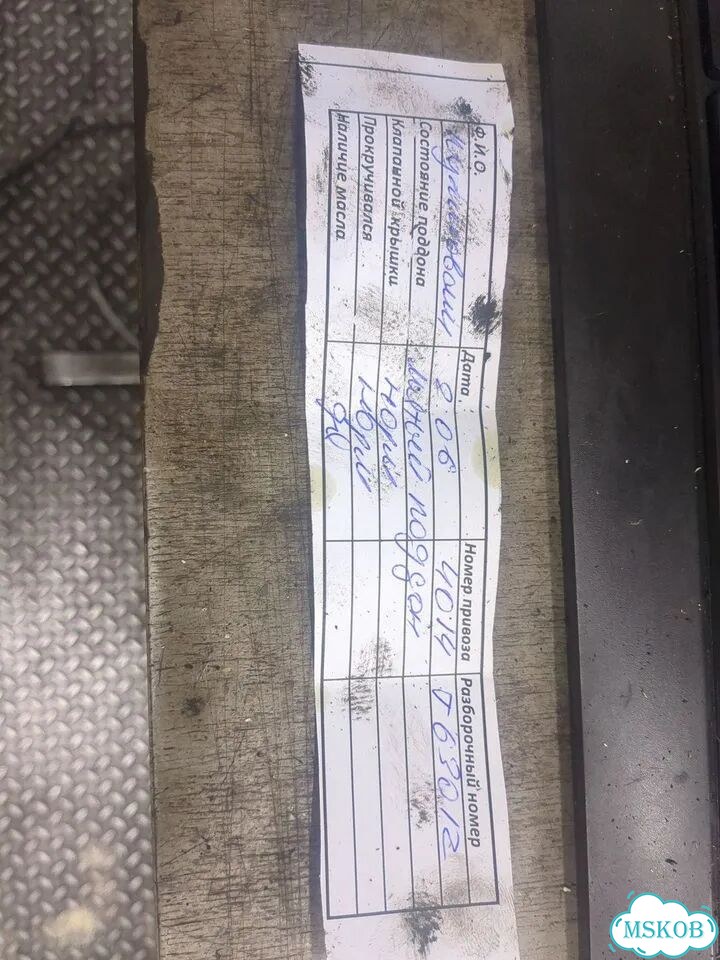 Ф.И.О. Дата Номер привоза Разборочный номер
8 06 4014 J63012
Состояние поддона мятый поддон
Клапашной крышки норм
Прокручивался норм
Наличие масла да
MSKOB